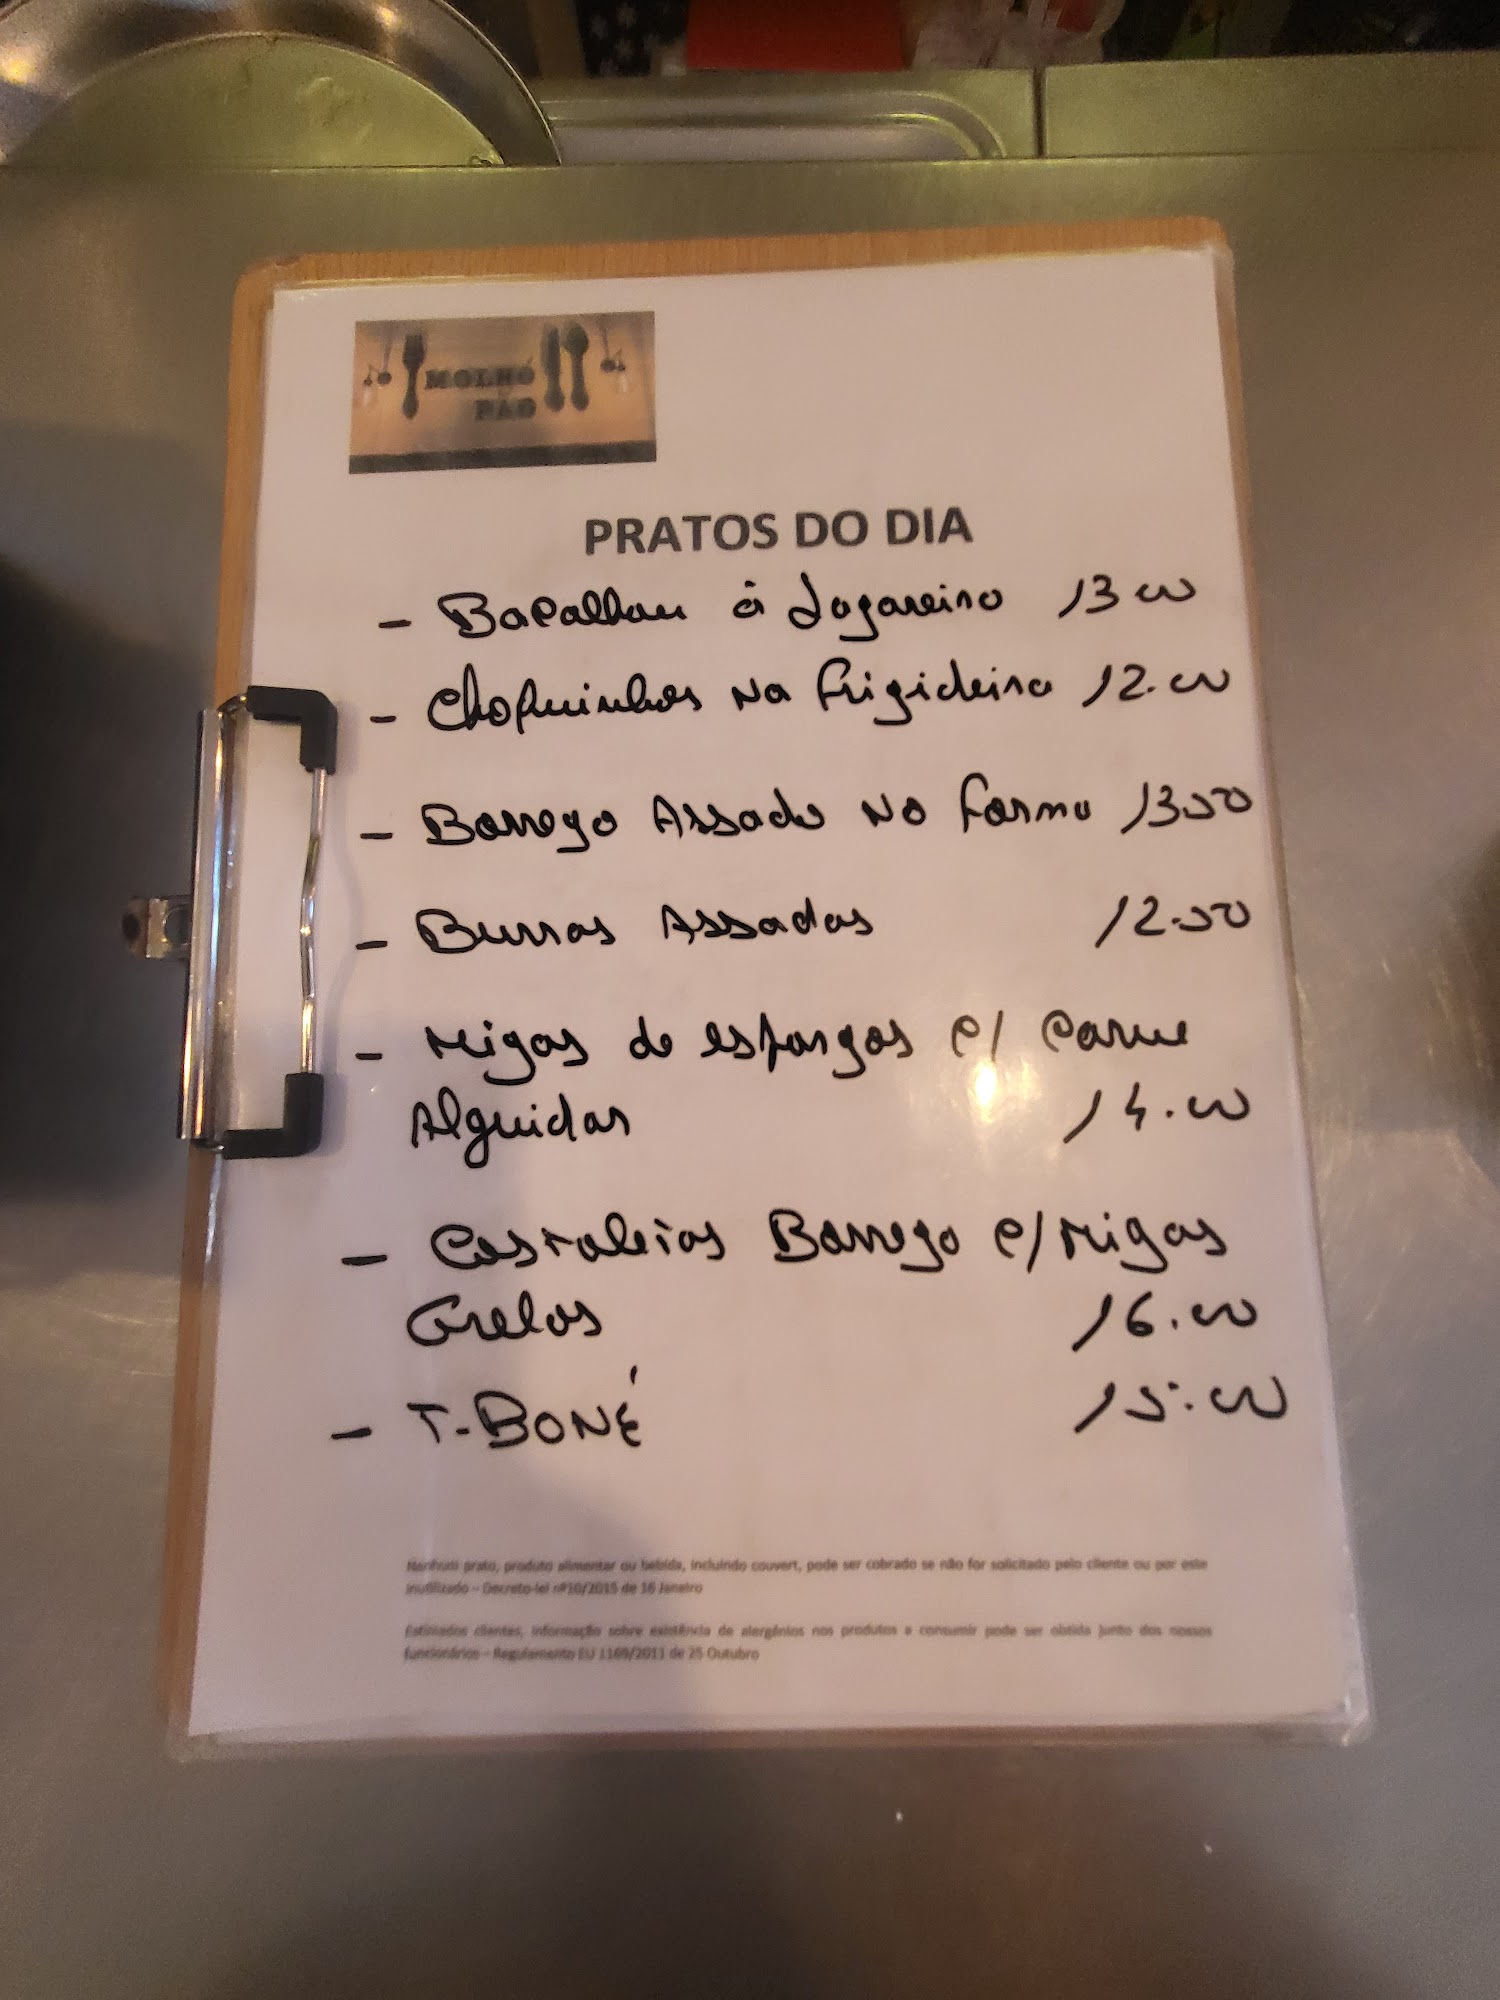 MOLHÓ
PÃO
PRATOS DO DIA
- Bacalhau á Lagareiro 13 00
- Choquinhos na Frigideira 12.00
- Borrego Assado no Forno 13.00
- Burras Assadas 12.00
- Migas de espargos c/ Carne
Alguidar 14.00
- Costoletas Borrego c/ Migas
Grelos 16.00
- T-BONÉ 15.00
Nenhum prato, produto alimentar ou bebida, incluindo couvert, pode ser cobrado se não for solicitado pelo cliente ou por este
inutilizado – Decreto-lei nº10/2015 de 16 Janeiro
Estimados clientes, informação sobre existência de alergénios nos produtos a consumir pode ser obtida junto dos nossos
funcionários – Regulamento EU 1169/2011 de 25 Outubro